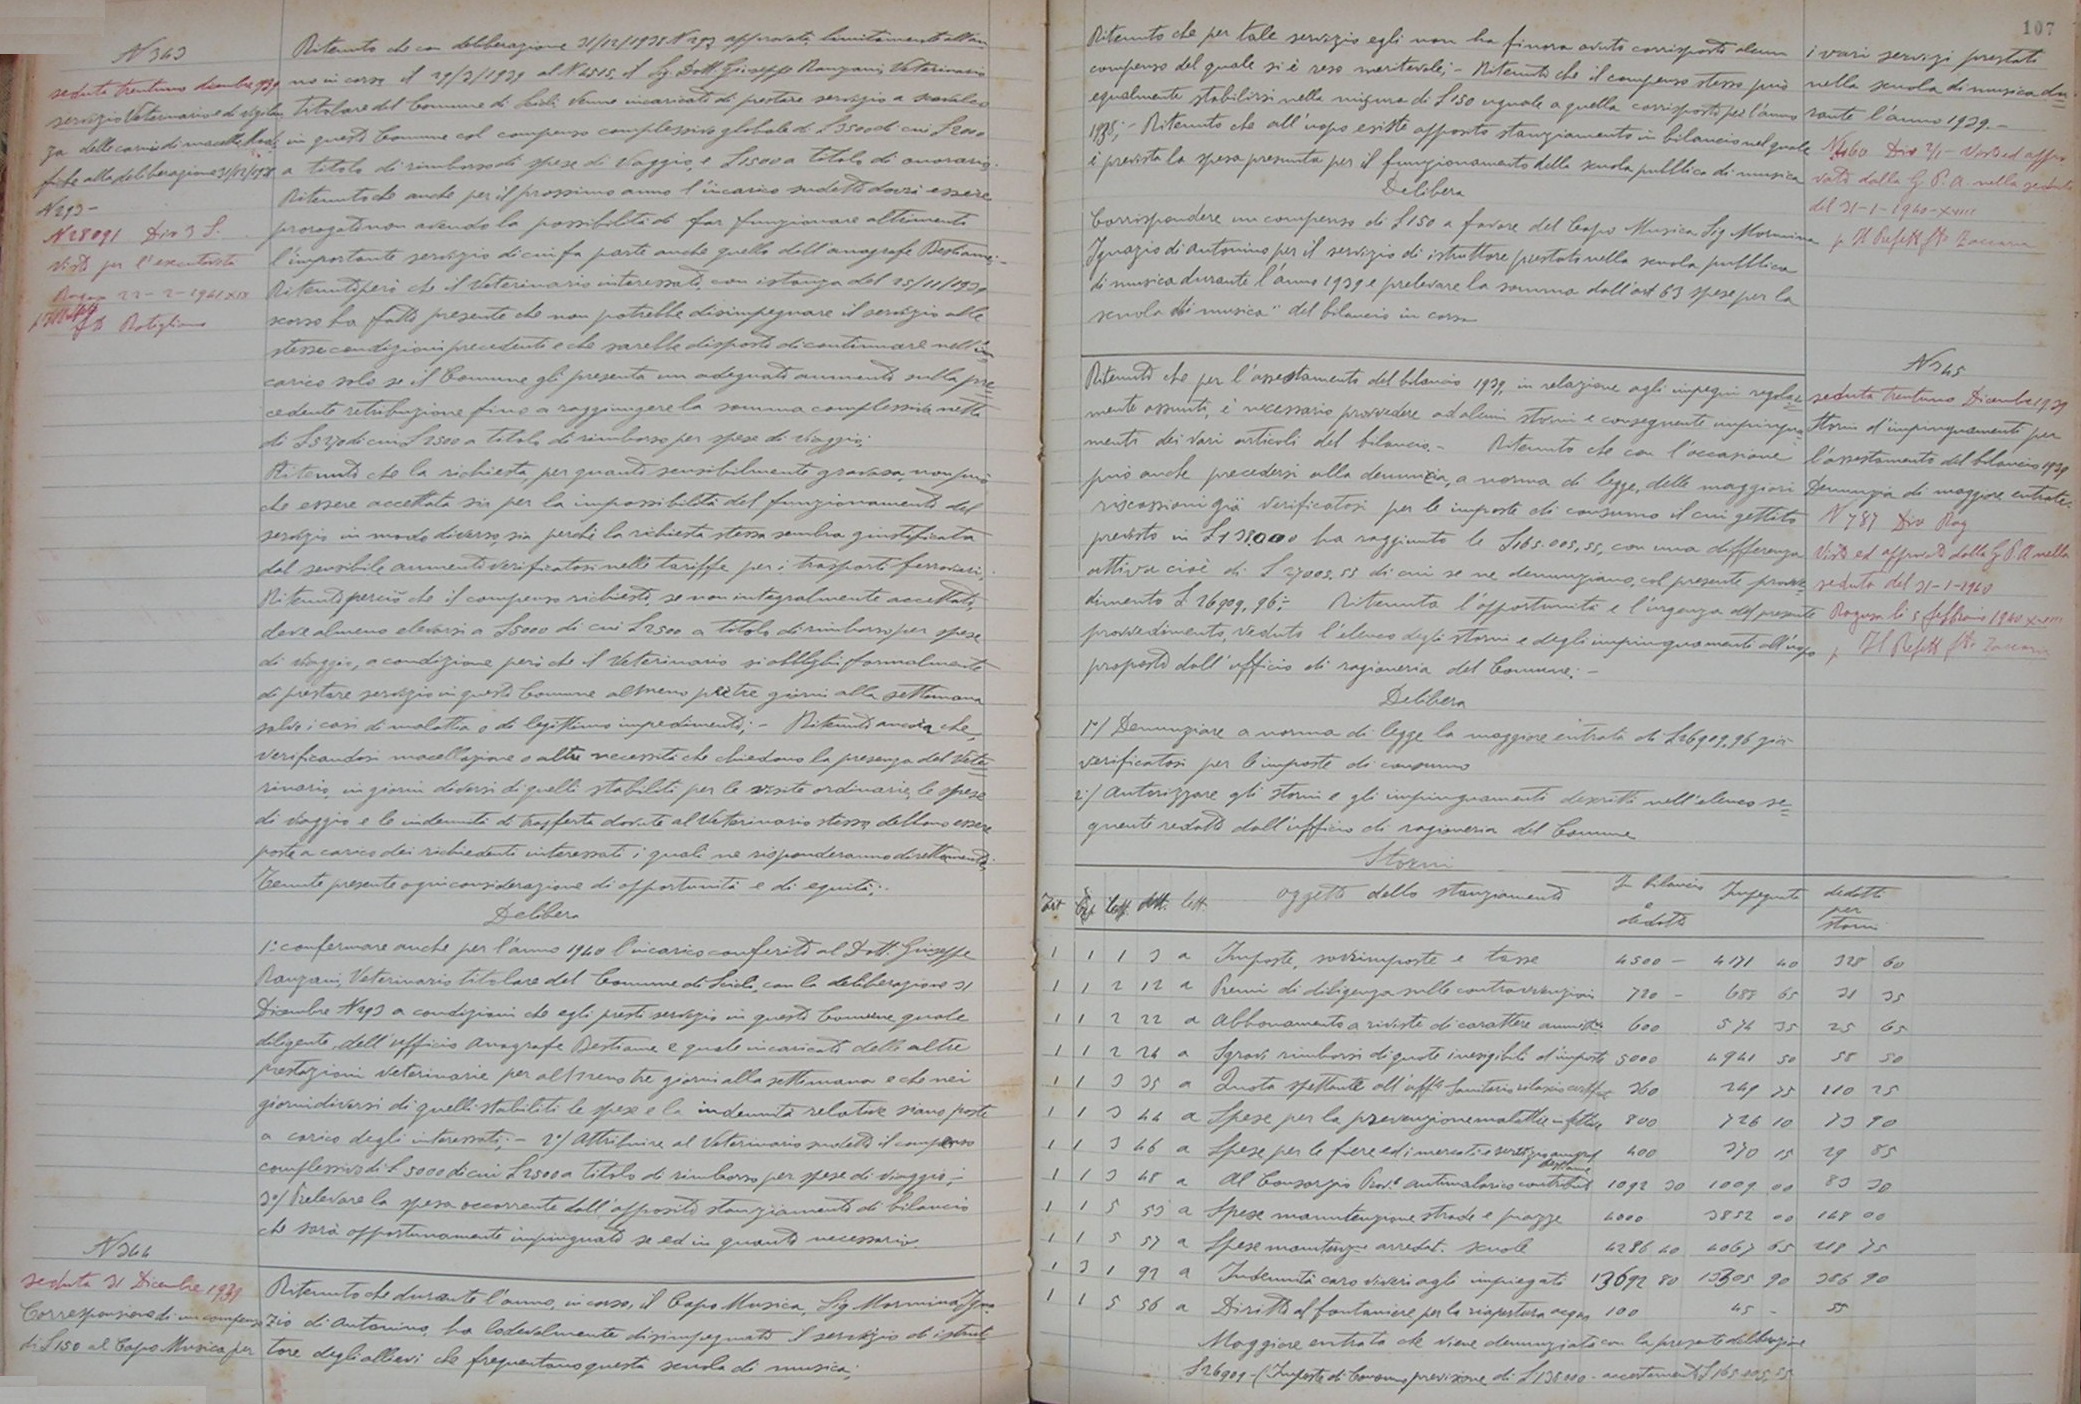 N 343
seduta trentuno dicembre 1939
servizio Veterinario e di vigilan
za delle carni di macello. Modi
fiche alla deliberazione 31/12/1938
N 293 -
N 28091 Div 3 S.
Visto per l'esecutorietà
Ragusa 22-2-1941 XIX
Ritenuto che con deliberazione 31/12/1938 N 293 approvata, limitatamente all'an
no in corso il 29/3/1939 al N 4515, il Sig Dott. Giuseppe Ranzani, Veterinario
titolare del Comune di Scicli venne incaricato di prestare servizio a scavalco
in questo Comune col compenso complessivo globale di £ 3500 di cui £ 2000
a titolo di rimborso di spese di Viaggio, e £ 1500 a titolo di onorario;
Ritenuto che anche per il prossimo anno l'incarico sudetto dovrà essere
prorogato non avendo la possibilità di far funzionare altrimenti
l'importante servizio di cui fa parte anche quello dell'anagrafe Bestiame;-
Ritenuto però che il Veterinario interessato, con istanza del 25/11/1939
scorso ha fatto presente che non potrebbe disimpegnare il servizio alle
stesse condizioni precedenti e che sarebbe disposto di continuare nell'in
carico solo se il Comune gli presenta un adeguato aumento sulla pre
cedente retribuzione fino a raggiungere la somma complessiva netta
di £ 5270 di cui £ 2500 a titolo di rimborso per spese di viaggio;
Ritenuto che la richiesta, per quanto sensibilmente gravosa, non può
che essere accettata sia per la impossibilità del funzionamento del
servizio in modo diverso, sia perché la richiesta stessa sembra giustificata
dal sensibile aumento verificatosi nelle tariffe per i trasporti ferroviari;
Ritenuto perciò che il compenso richiesto, se non integralmente accettato,
deve almeno elevarsi a £ 5000 di cui £ 2500 a titolo di rimborso per spese
di viaggio, a condizione però che il Veterinario si obblighi formalmente
di prestare servizio in questo Comune almeno per tre giorni alla settimana
salvo i casi di malattia o di legittimo impedimento;- Ritenuto ancora che,
verificandosi macellazione o altre necessità che chiedono la presenza del Vete
rinario, in giorni diversi di quelli stabiliti per le visite ordinarie, le spese
di viaggio e le indennità di trasferta dovute al Veterinario stesso, debbono essere
poste a carico dei richiedenti interessati i quali ne risponderanno direttamente;
Tenute presente ogni considerazione di opportunità e di equità;-
Delibera
1° confermare anche per l'anno 1940 l'incarico conferito al Dott. Giuseppe
Ranzani, Veterinario titolare del Comune di Scicli, con la deliberazione 31
Dicembre N 293 a condizioni che egli presti servizio in questo Comune quale
dirigente dell'ufficio Anagrafe Bestiame e quale incaricato delle altre
prestazioni veterinarie per almeno tre giorni alla settimana e che nei
giorni diversi di quelli stabiliti le spese e la indennità relative siano poste
a carico degli interessati;- 2°/ Attribuire al Veterinario sudetto il compenso
complessivo di £ 5000 di cui £ 2500 a titolo di rimborso per spese di viaggio;-
3°/ Prelevare la spesa occorrente dall'apposito stanziamento di bilancio
che sarà opportunamente impinguato se ed in quanto necessario.
N 344
seduta 31 Dicembre 1939
Corresponsione di un compenso
di £ 150 al Capo Musica per
Ritenuto che durante l'anno, in corso, il Capo Musica, Sig. Mormina Igna
zio di Antonino, ha lodevolmente disimpegnato il servizio di istrut
tore degli allievi che frequentano questa scuola di musica;
107
Ritenuto che per tale servizio egli non ha finora avuto corrisposto alcun
compenso del quale si è reso meritevole;- Ritenuto che il compenso stesso può
egualmente stabilirsi nella misura di £ 150 uguale a quella corrisposta per l'anno
1938;- Ritenuto che all'uopo esiste apposito stanziamento in bilancio nel quale
è prevista la spesa presunta per il funzionamento della scuola pubblica di musica
Delibera
Corrispondere un compenso di £ 150 a favore del Capo Musica Sig Mormina
Ignazio di Antonino per il servizio di istruttore prestato nella scuola pubblica
di musica durante l'anno 1939 e prelevare la somma dall'art 63 spese per la
scuola di musica" del bilancio in corso
i vari servizi prestati
nella scuola di musica du
rante l'anno 1939.-
Visto ed appro
vato dalla G. P. A. nella seduta
del 31-1-1940-XVIII
p Il Prefetto fto Zaccaria
Ritenuto che per l'assestamento del bilancio 1939, in relazione agli impegni regolar
mente assunti, è necessario provvedere ad alcuni storni e conseguente impingua
mento dei vari articoli del bilancio.- Ritenuto che con l'occasione
può anche procedersi alla denunzia, a norma di legge, delle maggiori
riscossioni già verificatosi per le imposte di consumo il cui gettito
previsto in £ 138000 ha raggiunto le £ 165.005,55, con una differenza
attiva cioè di £ 27005,55 di cui se ne denunziano, col presente provve
dimento £ 26909,96;- Ritenuta l'opportunità e l'urgenza del presente
provvedimento, veduto l'elenco degli storni e degli impinguamenti all'uopo
proposto dall'ufficio di ragioneria del Comune;-
Delibera
1°/ Denunziare a norma di legge la maggiore entrata di £ 26909,96 già
verificatosi per le imposte di consumo
2°/ Autorizzare gli storni e gli impinguamenti descritti nell'elenco se
guente redatto dall'ufficio di ragioneria del Comune
N 345
seduta trentuno Dicembre 1939
Storni d'impinguamenti per
l'assestamento del bilancio 1939
Denunzia di maggiore entrate
N 787 Div Rag
Visto ed approvato dalla G. P. A nella
seduta del 31-1-1940
Ragusa li 5 febbraio 1940 XVIII
p Il Prefetto fto Zaccaria
Storni
oggetto dello stanziamento In bilancio e dedotto Impegnato dedotti per storni
1 1 1 3 a Imposte, sovrimposte e tasse 4500 - 4171 40 328 60
1 1 2 12 a Premi di diligenza sulle contravvenzioni 720 - 688 65 31 35
1 1 2 22 a Abbonamento a riviste di carattere ammitivo 600 574 35 25 65
1 1 2 24 a Sgravi rimborsi di quote inesigibili d'imposte 5000 4941 50 58 50
1 1 3 35 a Quota spettante all'uff° Sanitario rilascio certific 360 249 75 110 25
1 1 3 44 a Spese per la prevenzione malattie infettive 800 726 10 73 90
1 1 3 46 a Spese per le fiere ed i mercati e servizio anagraf bestiame 400 370 15 29 85
1 1 3 48 a Al Consorzio Prov.le antimalarico contributo 1092 30 1009 00 83 30
1 1 5 53 a Spese manutenzione strade e piazze 4000 3852 00 148 00
1 1 5 57 a Spese manutenzne arredat. scuole 4286 40 4067 65 218 75
1 3 1 92 a Indennità caro viveri agli impiegati 13692 80 13305 90 386 90
1 1 5 56 a Diritto al fontaniere per la riapertura acqua 100 45 - 55
Maggiore entrata che viene denunziata con la presente deliberazione
£ 26909 - (Imposte di Consumo previsione di £ 138000 - accertamento £ 165.005,55